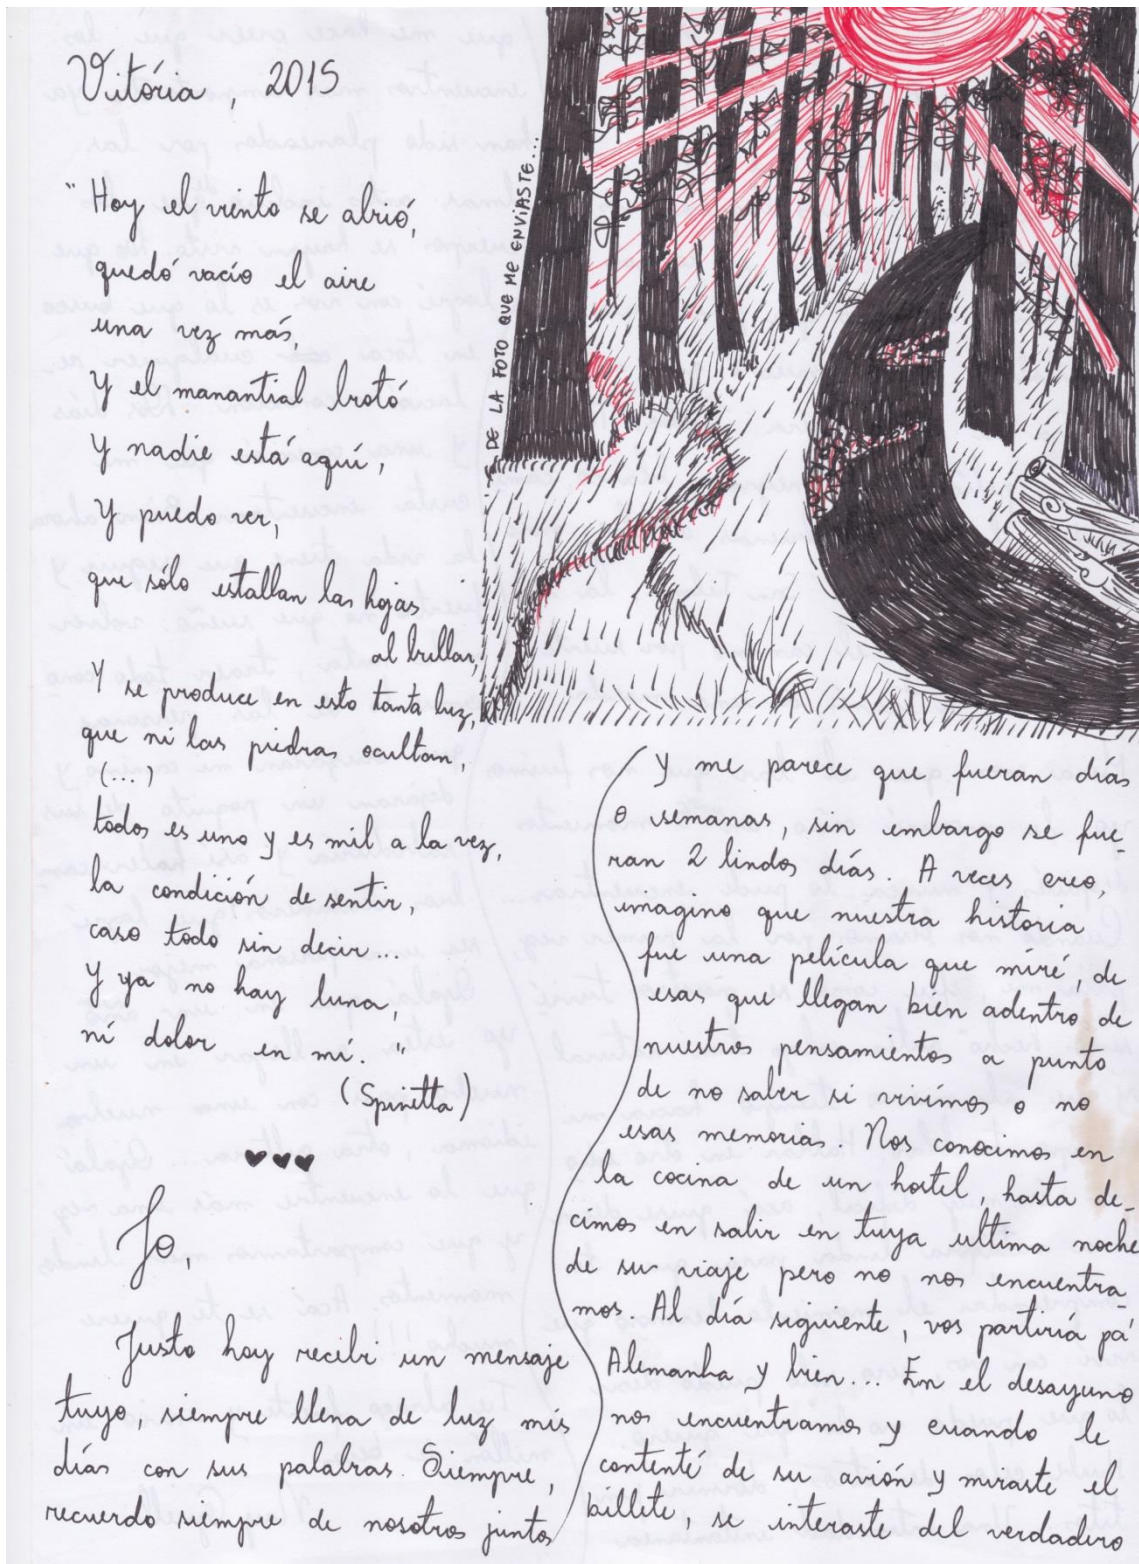 Vitória, 2015
"Hoy el viento se abrió,
quedó vacío el aire
una vez más,
Y el manantial brotó
Y nadie está aquí,
Y puedo ver,
que sólo estallan las hojas
al brillar,
Y se produce en esto tanta luz,
que ni las piedras ocultan,
(...)
todos es uno y es mil a la vez,
la condición de sentir,
caso todo sin decir...
Y ya no hay luna,
ni dolor en mí."
(Spinetta)
Jo,
Justo hoy recibi un mensaje
tuyo, siempre llena de luz mis
días con sus palabras. Siempre,
recuerdo siempre de nosotros juntos
DE LA FOTO QUE ME ENVIASTE...
Y me parece que fueran días
o semanas, sin embargo se fue-
ran 2 lindos días. A veces creo,
imagino que nuestra historia
fue una película que miré, de
esas que llegan bién adentro de
nuestros pensamientos a punto
de no saber si vivimos o no
esas memorias. Nos conocimos en
la cocina de un hostel, hasta de-
cimos en salir en tuya ultima noche
de su viaje pero no nos encuentra-
mos. Al día siguiente, vos partiría pá
Alemanha y bien... En el desayuno
nos encuentramos y cuando le
contenté de su avión y miraste el
billete, se interaste del verdadero